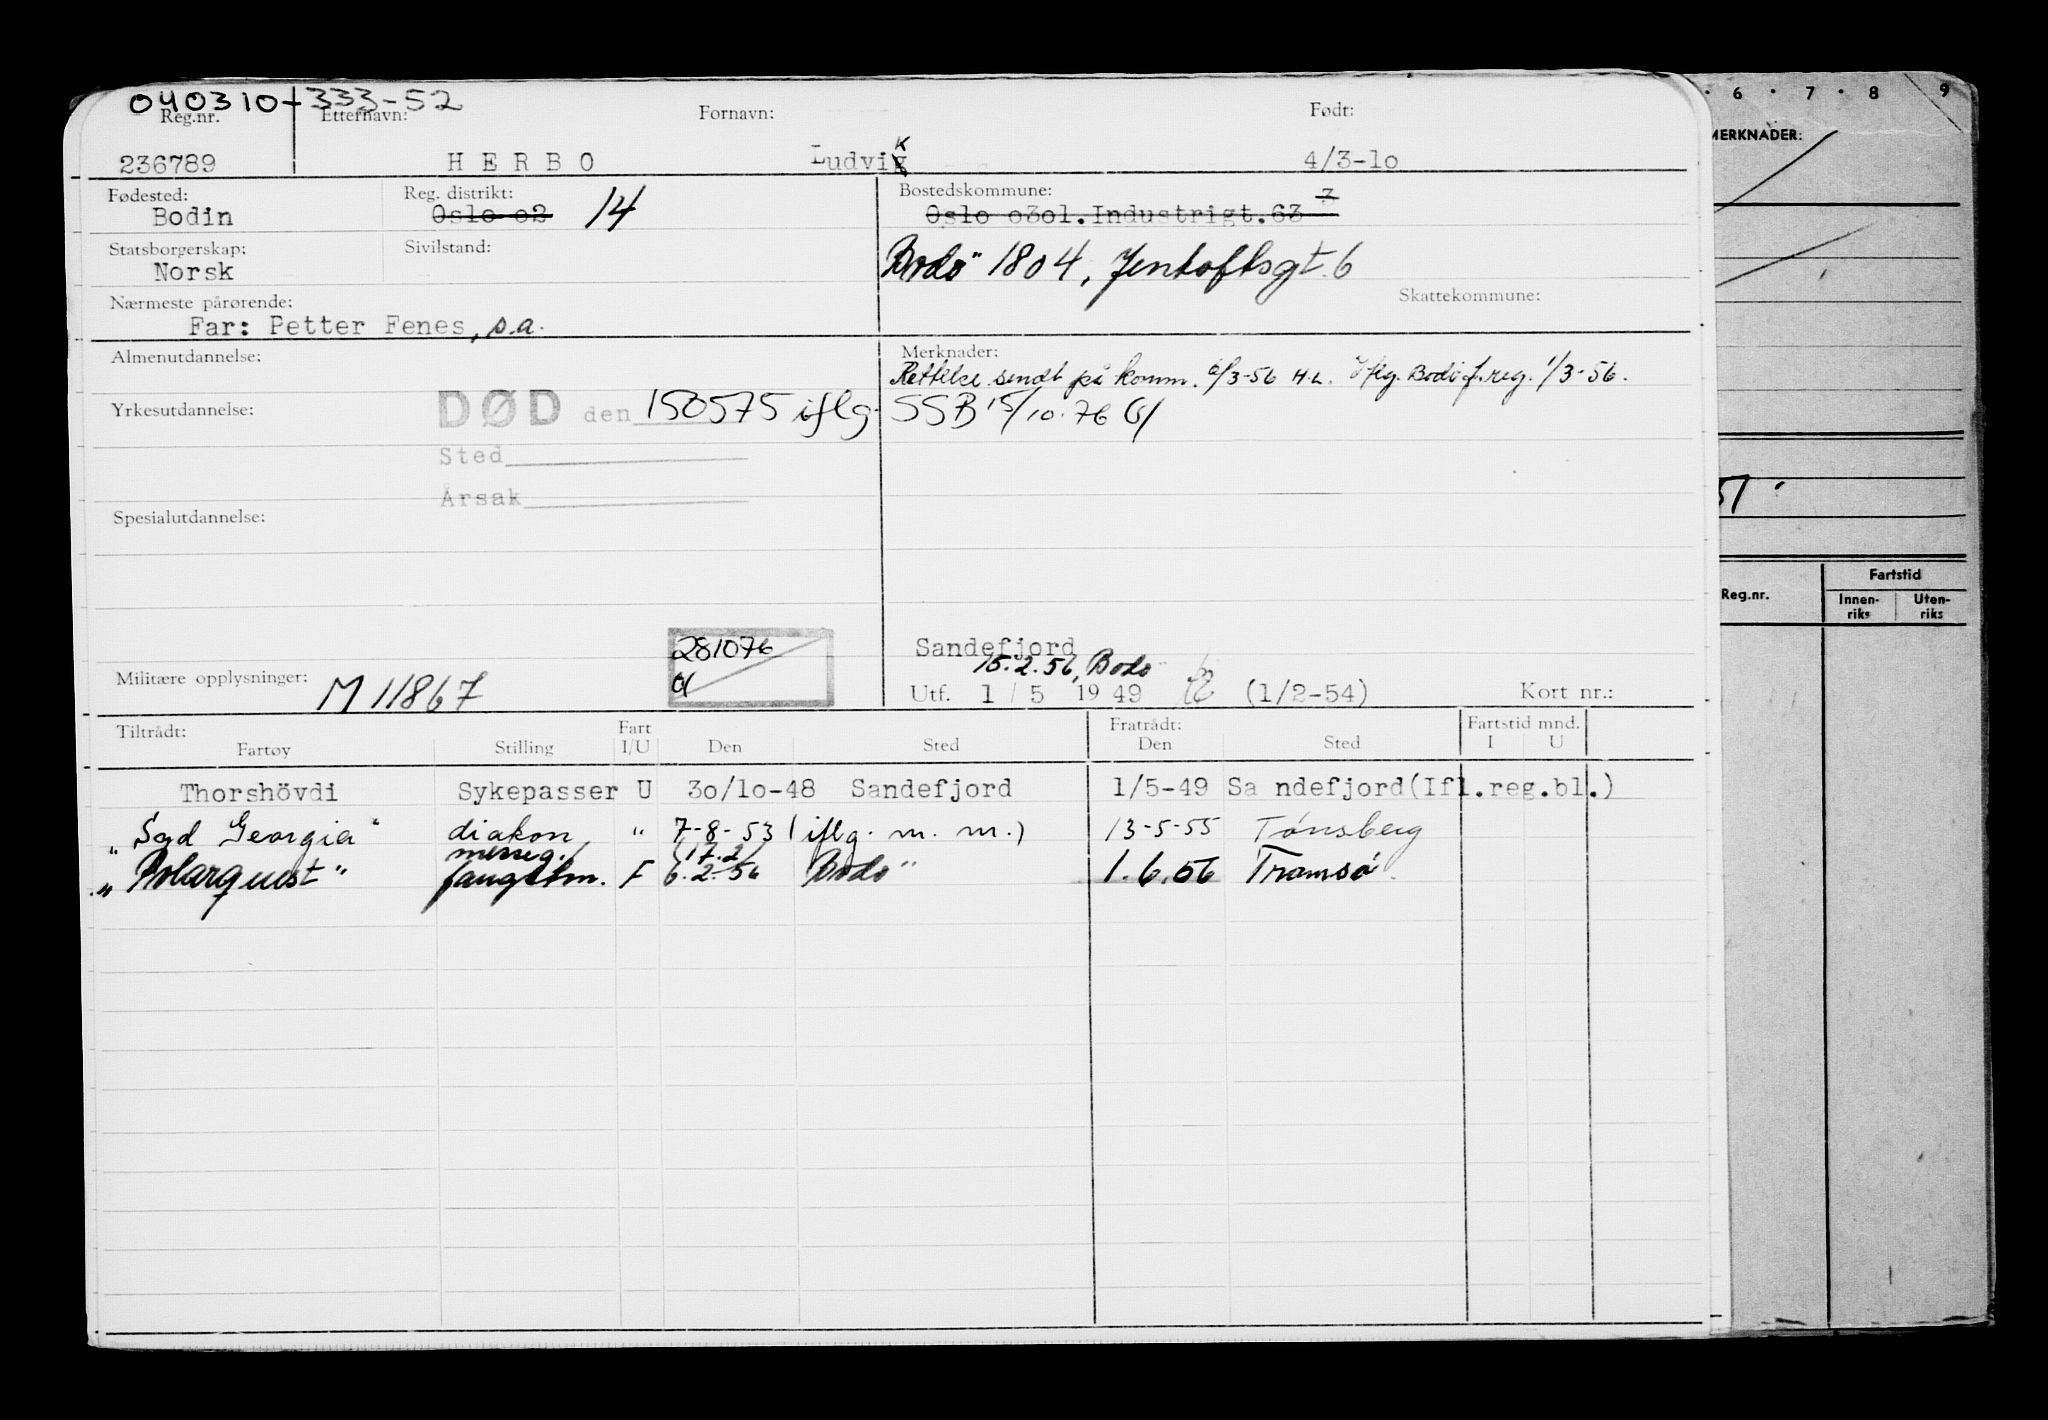 040310-333-52
Reg.nr. Etternavn: Fornavn: Født:
236789 HERBO Ludvik 4/3-1o
Fødested: Reg. distrikt: Bostedskommune:
Bodin Oslo o2 14 Oslo o3o1.Industrigt.63 7
Statsborgerskap: Sivilstand:
Norsk Bodø 1804, Jentoftsgt. 6
Nærmeste pårørende: Skattekommune:
Far: Petter Fenes, s.a.
Almenutdannelse: Merknader:
Rettelse sendt på komm. 6/3-56 H.L. Iflg. Bodø f.reg. 1/3-56.
Yrkesutdannelse: DØD den 150575 iflg. SSB 15/10.76
Sted
Årsak
Spesialutdannelse:
281076
Sandefjord
15.2.56, Bodø
Militære opplysninger: M 11867 Utf. 1/5 1949 (1/2-54) Kort nr.:
Tiltrådt: Fart Fratrådt: Fartstid mnd.
Fartøy Stilling I/U Den Sted Den Sted I U
Thorshövdi Sykepasser U 3o/1o-48 Sandefjord 1/5-49 Sa ndefjord(Ifl.reg.bl.)
"Syd Georgia" diakon " 7-8-53 (iflg. m. m.) 13-5-55 Tønsberg
messeg./ (17.2)
"Polarquest" fangstm. F 6.2.56 Bodø 1.6.56 Tromsø
6 · 7 · 8 9
MERKNADER:
51
Reg.nr. Fartstid
Innen-riks Uten-riks